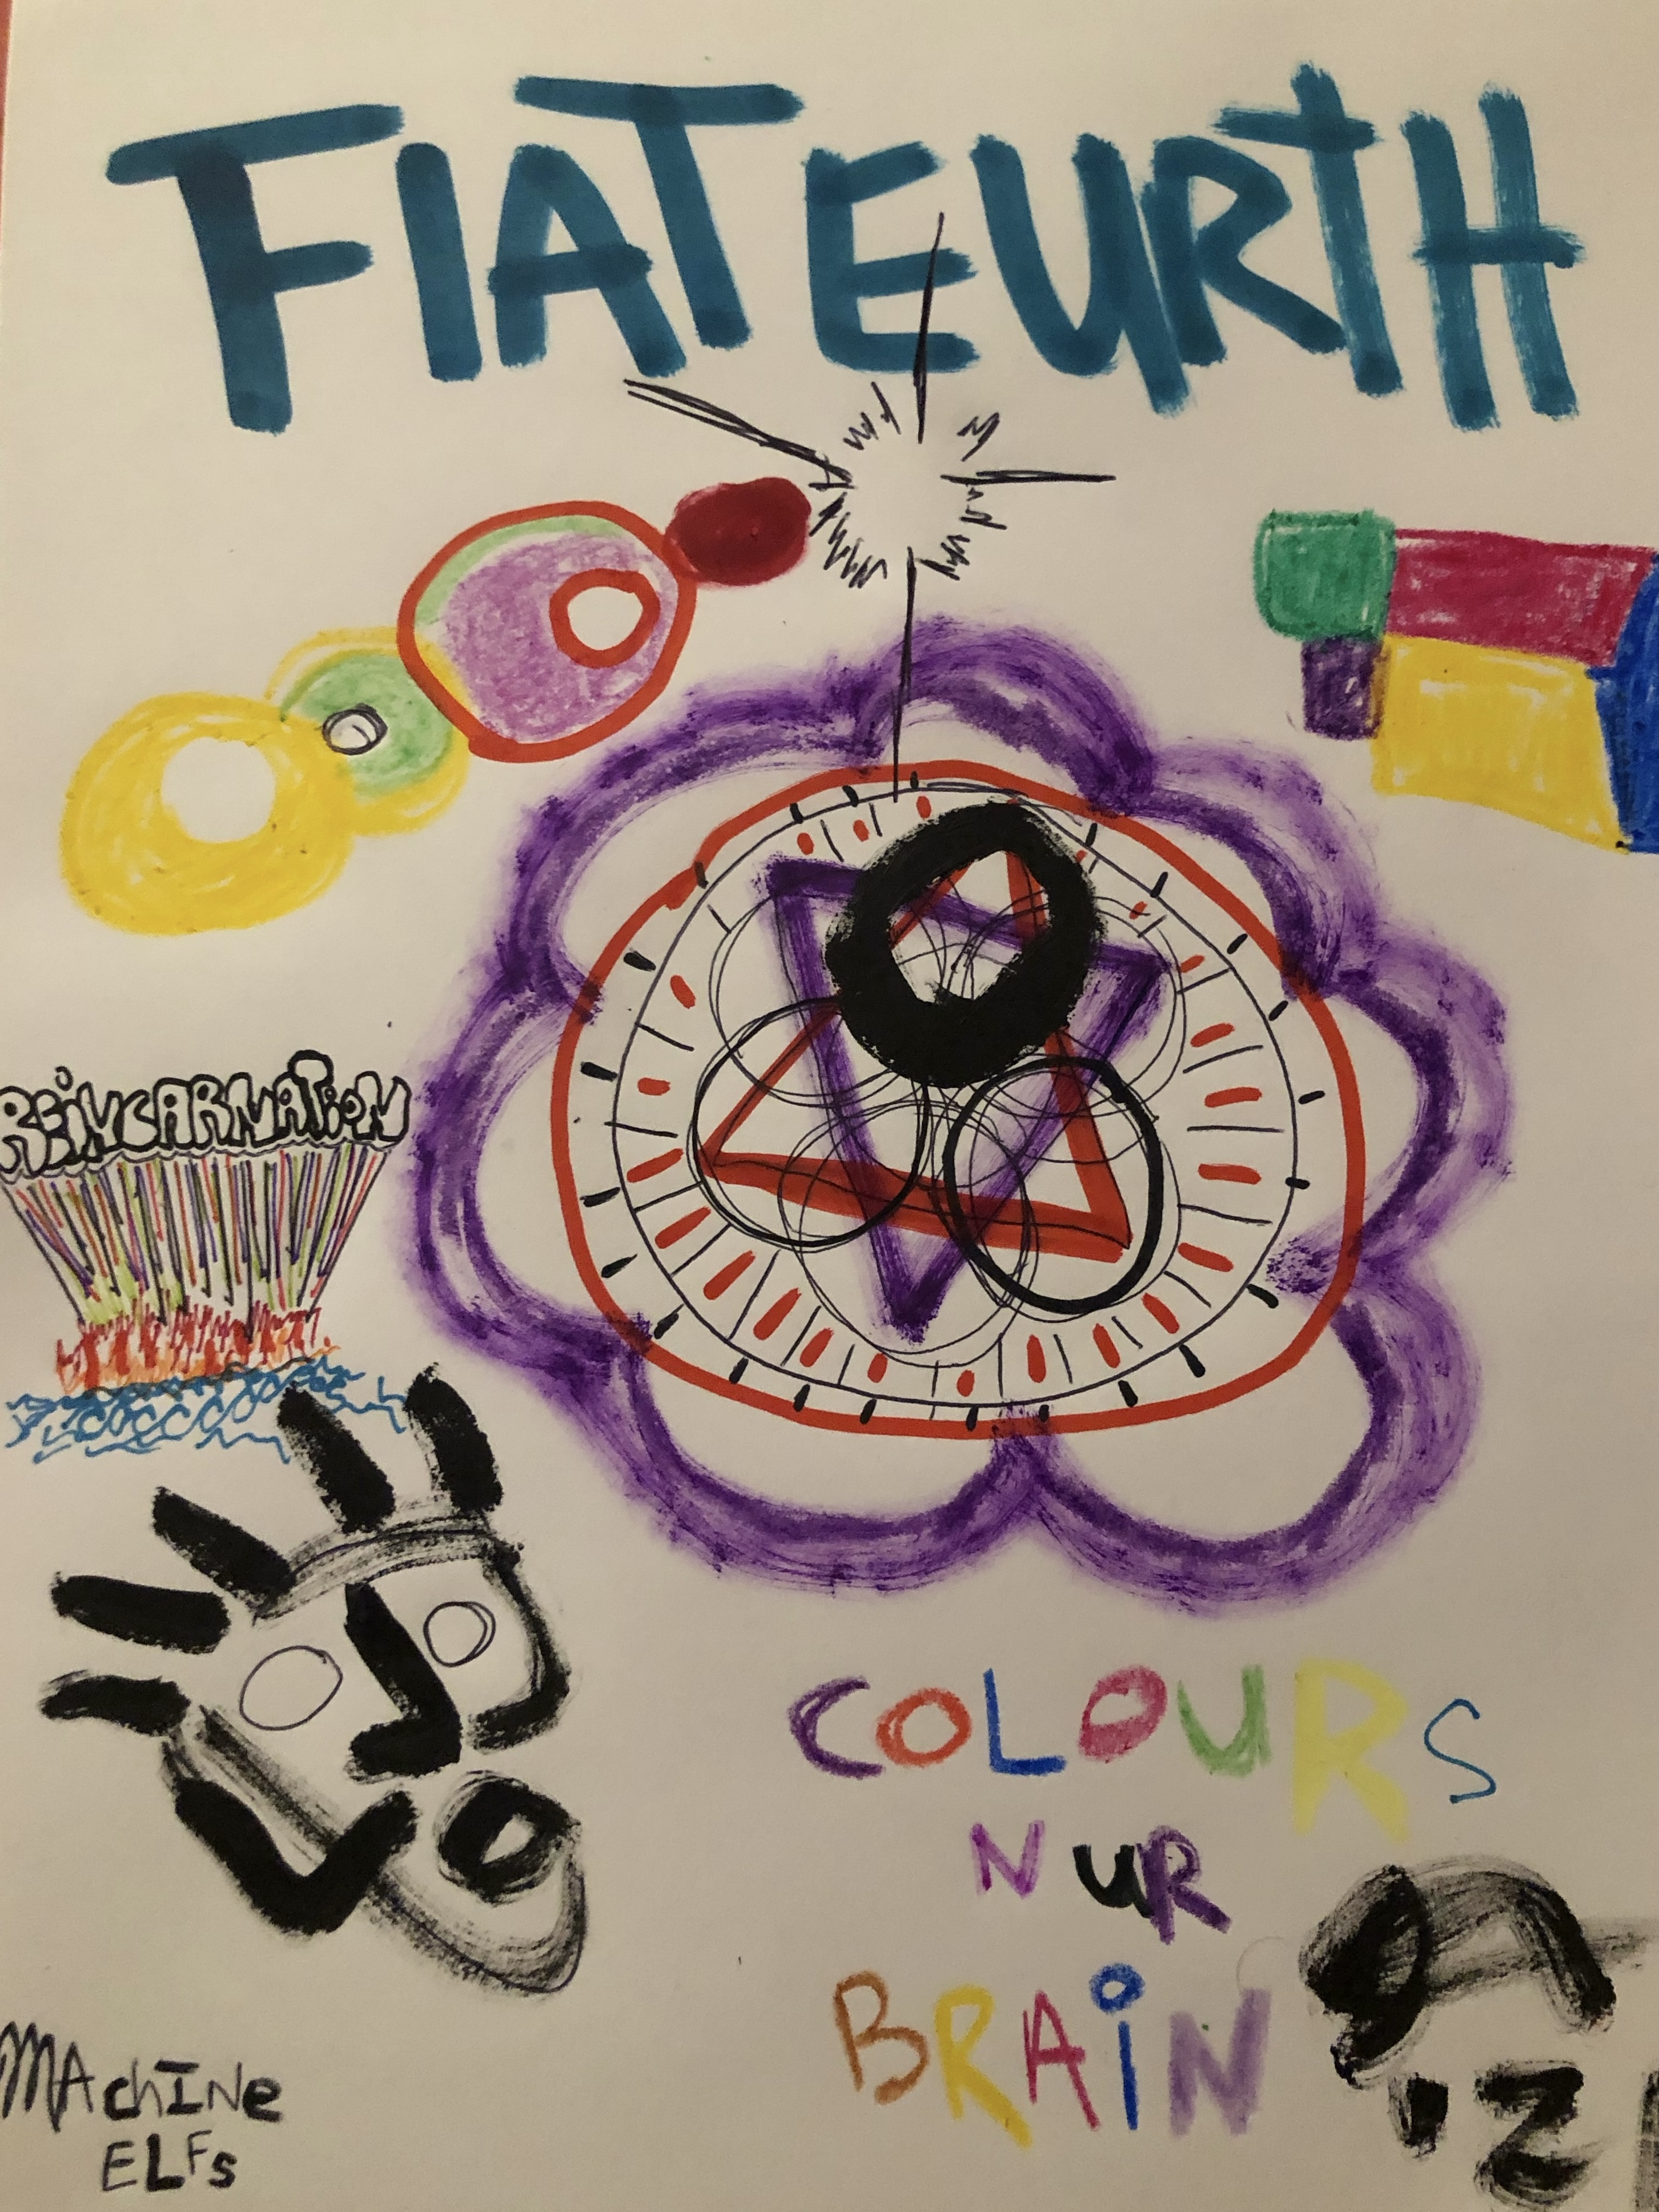 FIATEURTH
REiNCARNATiON
COLOURS
N UR
BRAiN
MAchINe
ELFs